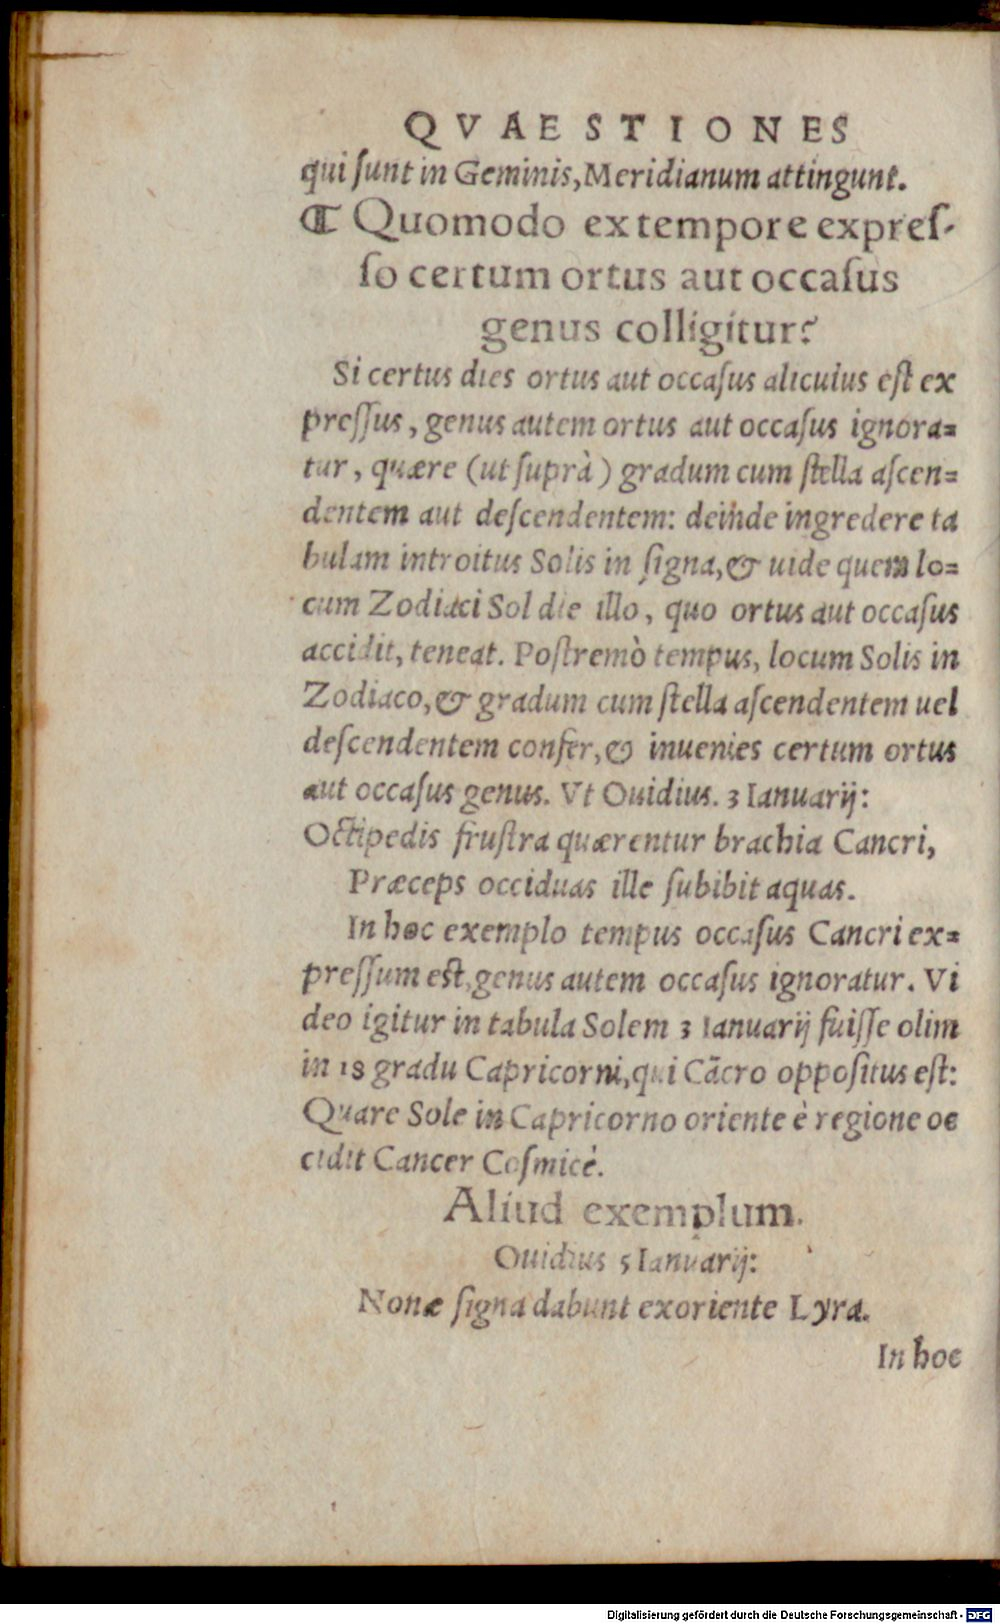 QVAESTIONES
qui ſunt in Geminis, Meridianum attingunt.
¶ Quomodo ex tempore expreſ-
ſo certum ortus aut occaſus
genus colligitur?
Si certus dies ortus aut occaſus alicuius eſt ex
preſſus, genus autem ortus aut occaſus ignora=
tur, quære (ut ſuprà) gradum cum ſtella aſcen=
dentem aut deſcendentem: deinde ingredere ta
bulam introitus Solis in ſigna, & uide quem lo=
cum Zodiaci Sol die illo, quo ortus aut occaſus
accidit, teneat. Poſtremò tempus, locum Solis in
Zodiaco, & gradum cum ſtella aſcendentem uel
deſcendentem confer, & inuenies certum ortus
aut occaſus genus. Vt Ouidius. 3 Ianuarij:
Octipedis fruſtra quærentur brachia Cancri,
Præceps occiduas ille ſubibit aquas.
In hoc exemplo tempus occaſus Cancri ex=
preſſum eſt, genus autem occaſus ignoratur. Vi
deo igitur in tabula Solem 3 Ianuarij fuiſſe olim
in 18 gradu Capricorni, qui Cãcro oppoſitus eſt:
Quare Sole in Capricorno oriente è regione oc
cidit Cancer Coſmicè.
Aliud exemplum.
Ouidius 5 Ianuarij:
Nonæ ſigna dabunt exoriente Lyra.
In hoc
Digitalisierung gefördert durch die Deutsche Forschungsgemeinschaft - DFG